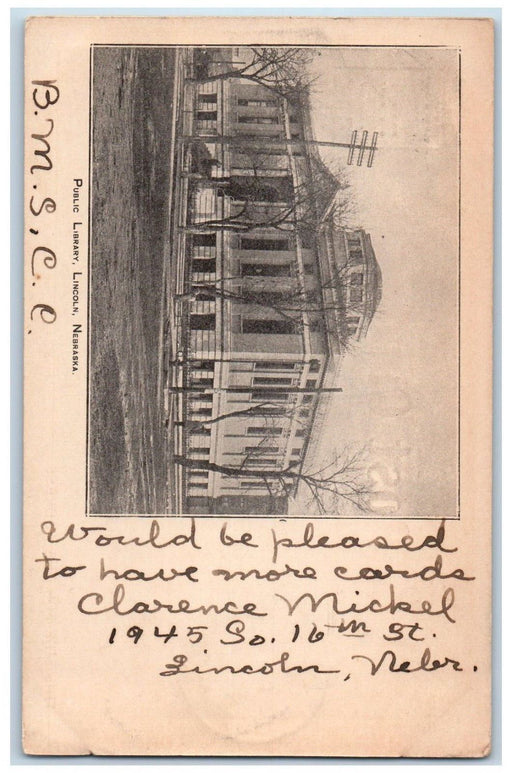 B.M.S.C.C.
PUBLIC LIBRARY, LINCOLN, NEBRASKA.
Would be pleased
to have more cards
Clarence Mickel
1945 So. 16th St.
Lincoln, Nebr.